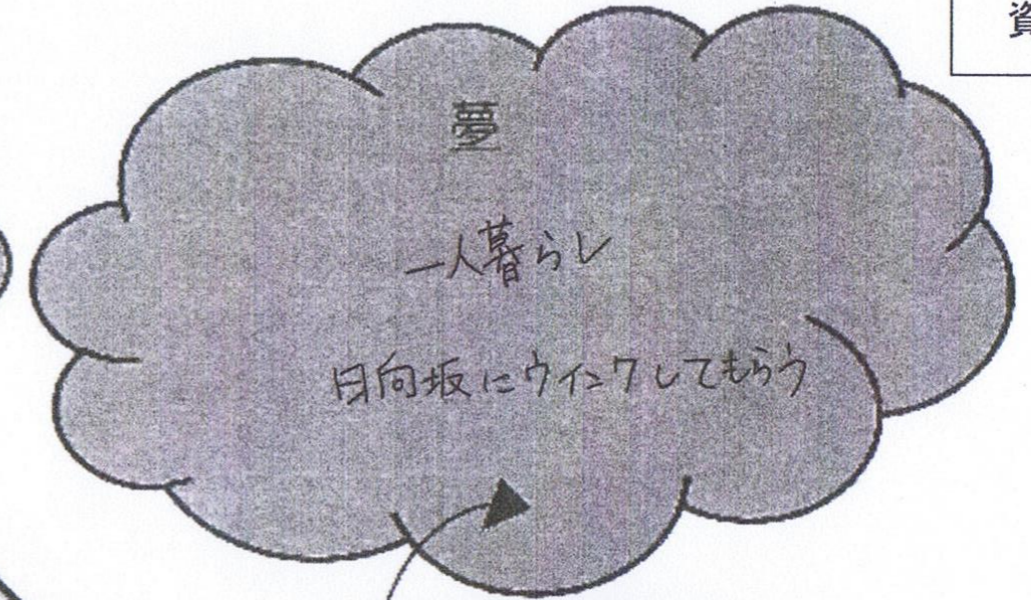 資
夢
一人暮らし
日向坂にウインクしてもらう